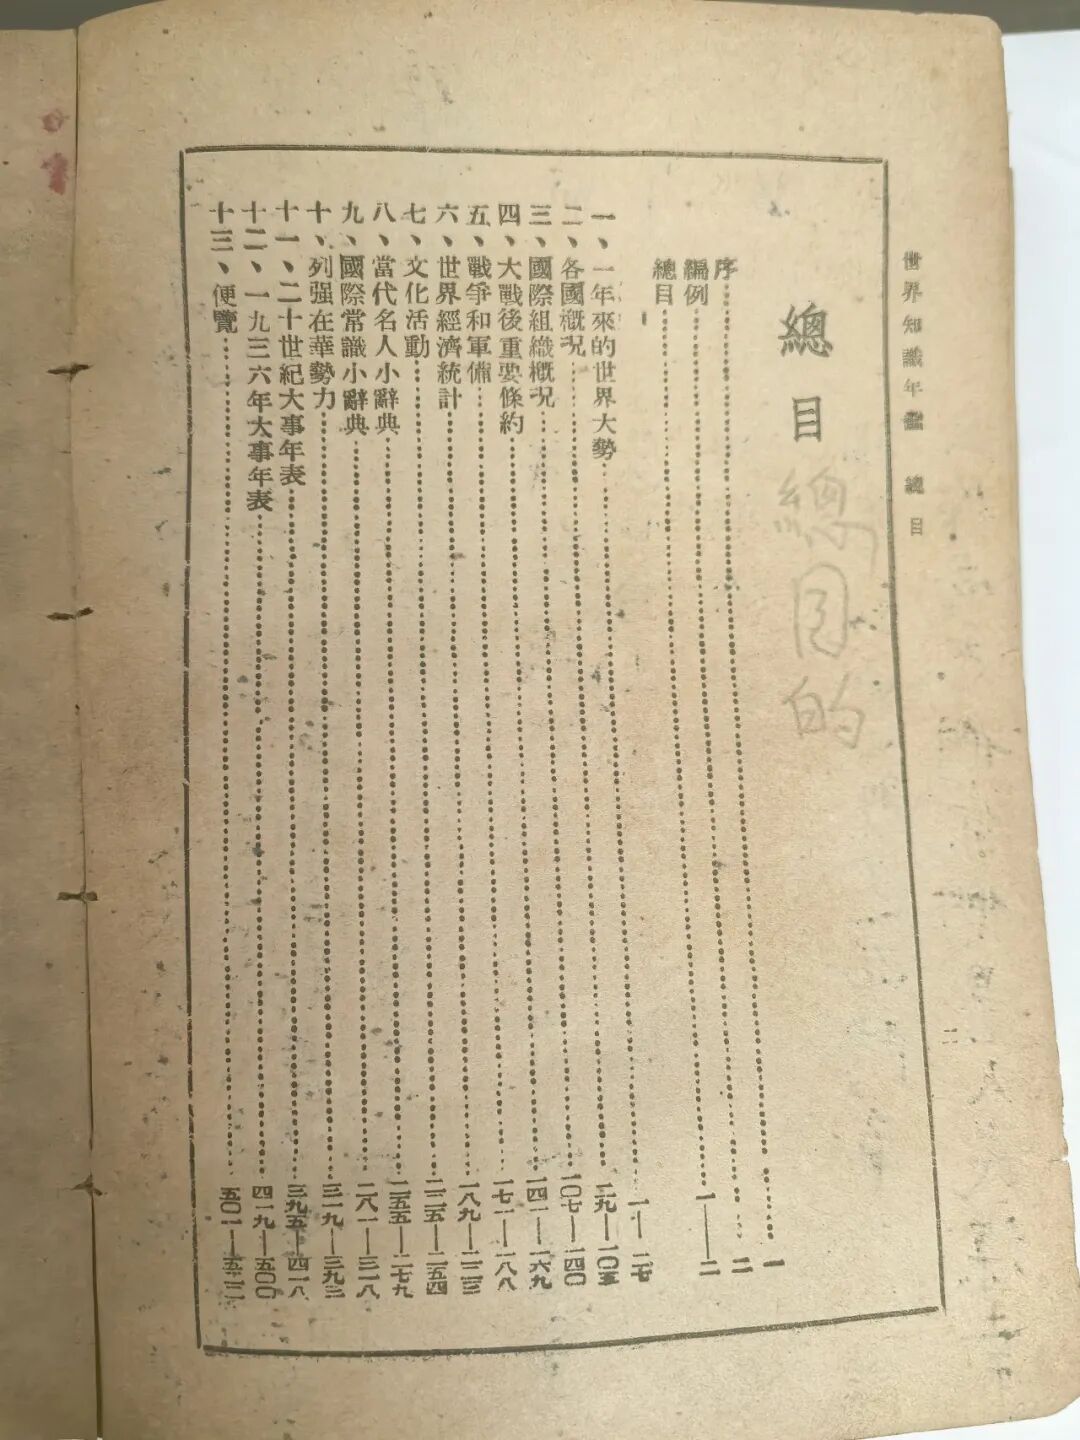 世界知識年鑑 總目 二
總目
總目的
序……一
編例……二
總目……一——二
一、一年來的世界大勢……一—二七
二、各國槪況……二九—一〇五
三、國際組織槪況……一〇七—一四〇
四、大戰後重要條約……一四一—一六九
五、戰爭和軍備……一七一—一八八
六、世界經濟統計……一八九—二二三
七、文化活動……二二五—二五四
八、當代名人小辭典……二五五—二七九
九、國際常識小辭典……二八一—三一八
十、列强在華勢力……三一九—三九三
十一、二十世紀大事年表……三九五—四一八
十二、一九三六年大事年表……四一九—五〇〇
十三、便覽……五〇一—